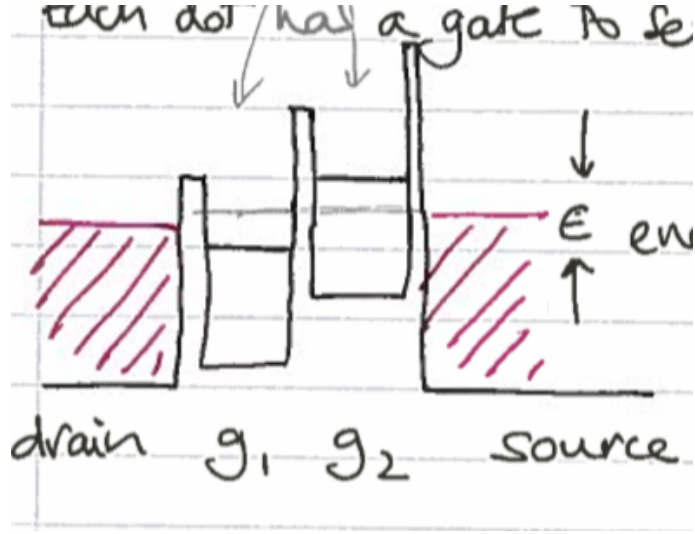 Each dot has a gate to se
ϵ ene
drain g₁ g₂ source